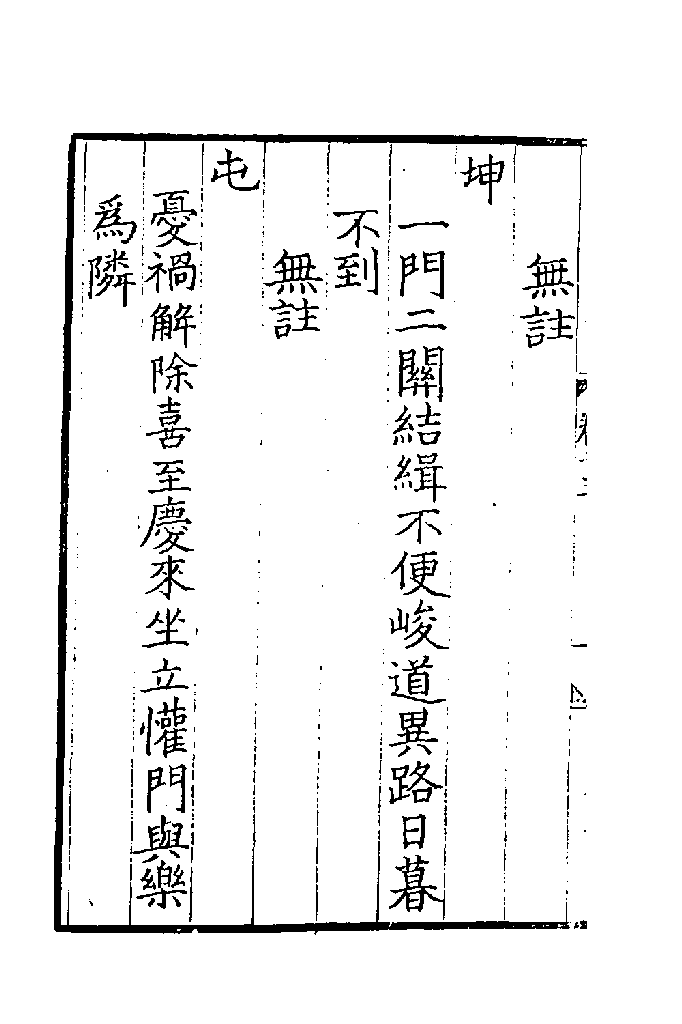 無註
坤
一門二關結緝不便峻道異路日暮
不到
無註
屯
憂禍解除喜至慶來坐立懽門與樂
為隣